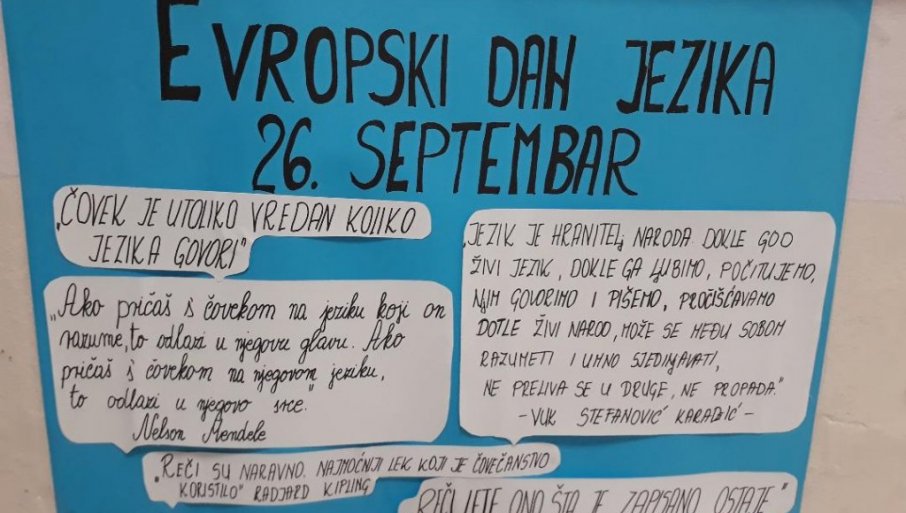 EVROPSKI DAN JEZIKA
26. SEPTEMBAR
„ČOVEK JE UTOLIKO VREDAN KOLIKO
JEZIKA GOVORI"
„Ako pričaš s čovekom na jeziku koji on
razume, to odlazi u njegovu glavu. Ako
pričaš s čovekom na njegovom jeziku,
to odlazi u njegovo srce."
Nelson Mendele
„JEZIK JE HRANITELJ NARODA. DOKLE GOD
ŽIVI JEZIK, DOKLE GA LJUBIMO, POČITUJEMO,
NJIM GOVORIMO I PIŠEMO, PROČIŠĆAVAMO
DOTLE ŽIVI NAROD, MOŽE SE MEĐU SOBOM
RAZUMETI I UMNO SJEDINJAVATI,
NE PRELIVA SE U DRUGE, NE PROPADA."
- VUK STEFANOVIĆ KARADŽIĆ -
„REČI SU NARAVNO. NAJMOĆNIJI LEK KOJI JE ČOVEČANSTVO
KORISTILO" RADJARD KIPLING
REČI LETE ONO ŠTA JE ZAPISANO OSTAJE"